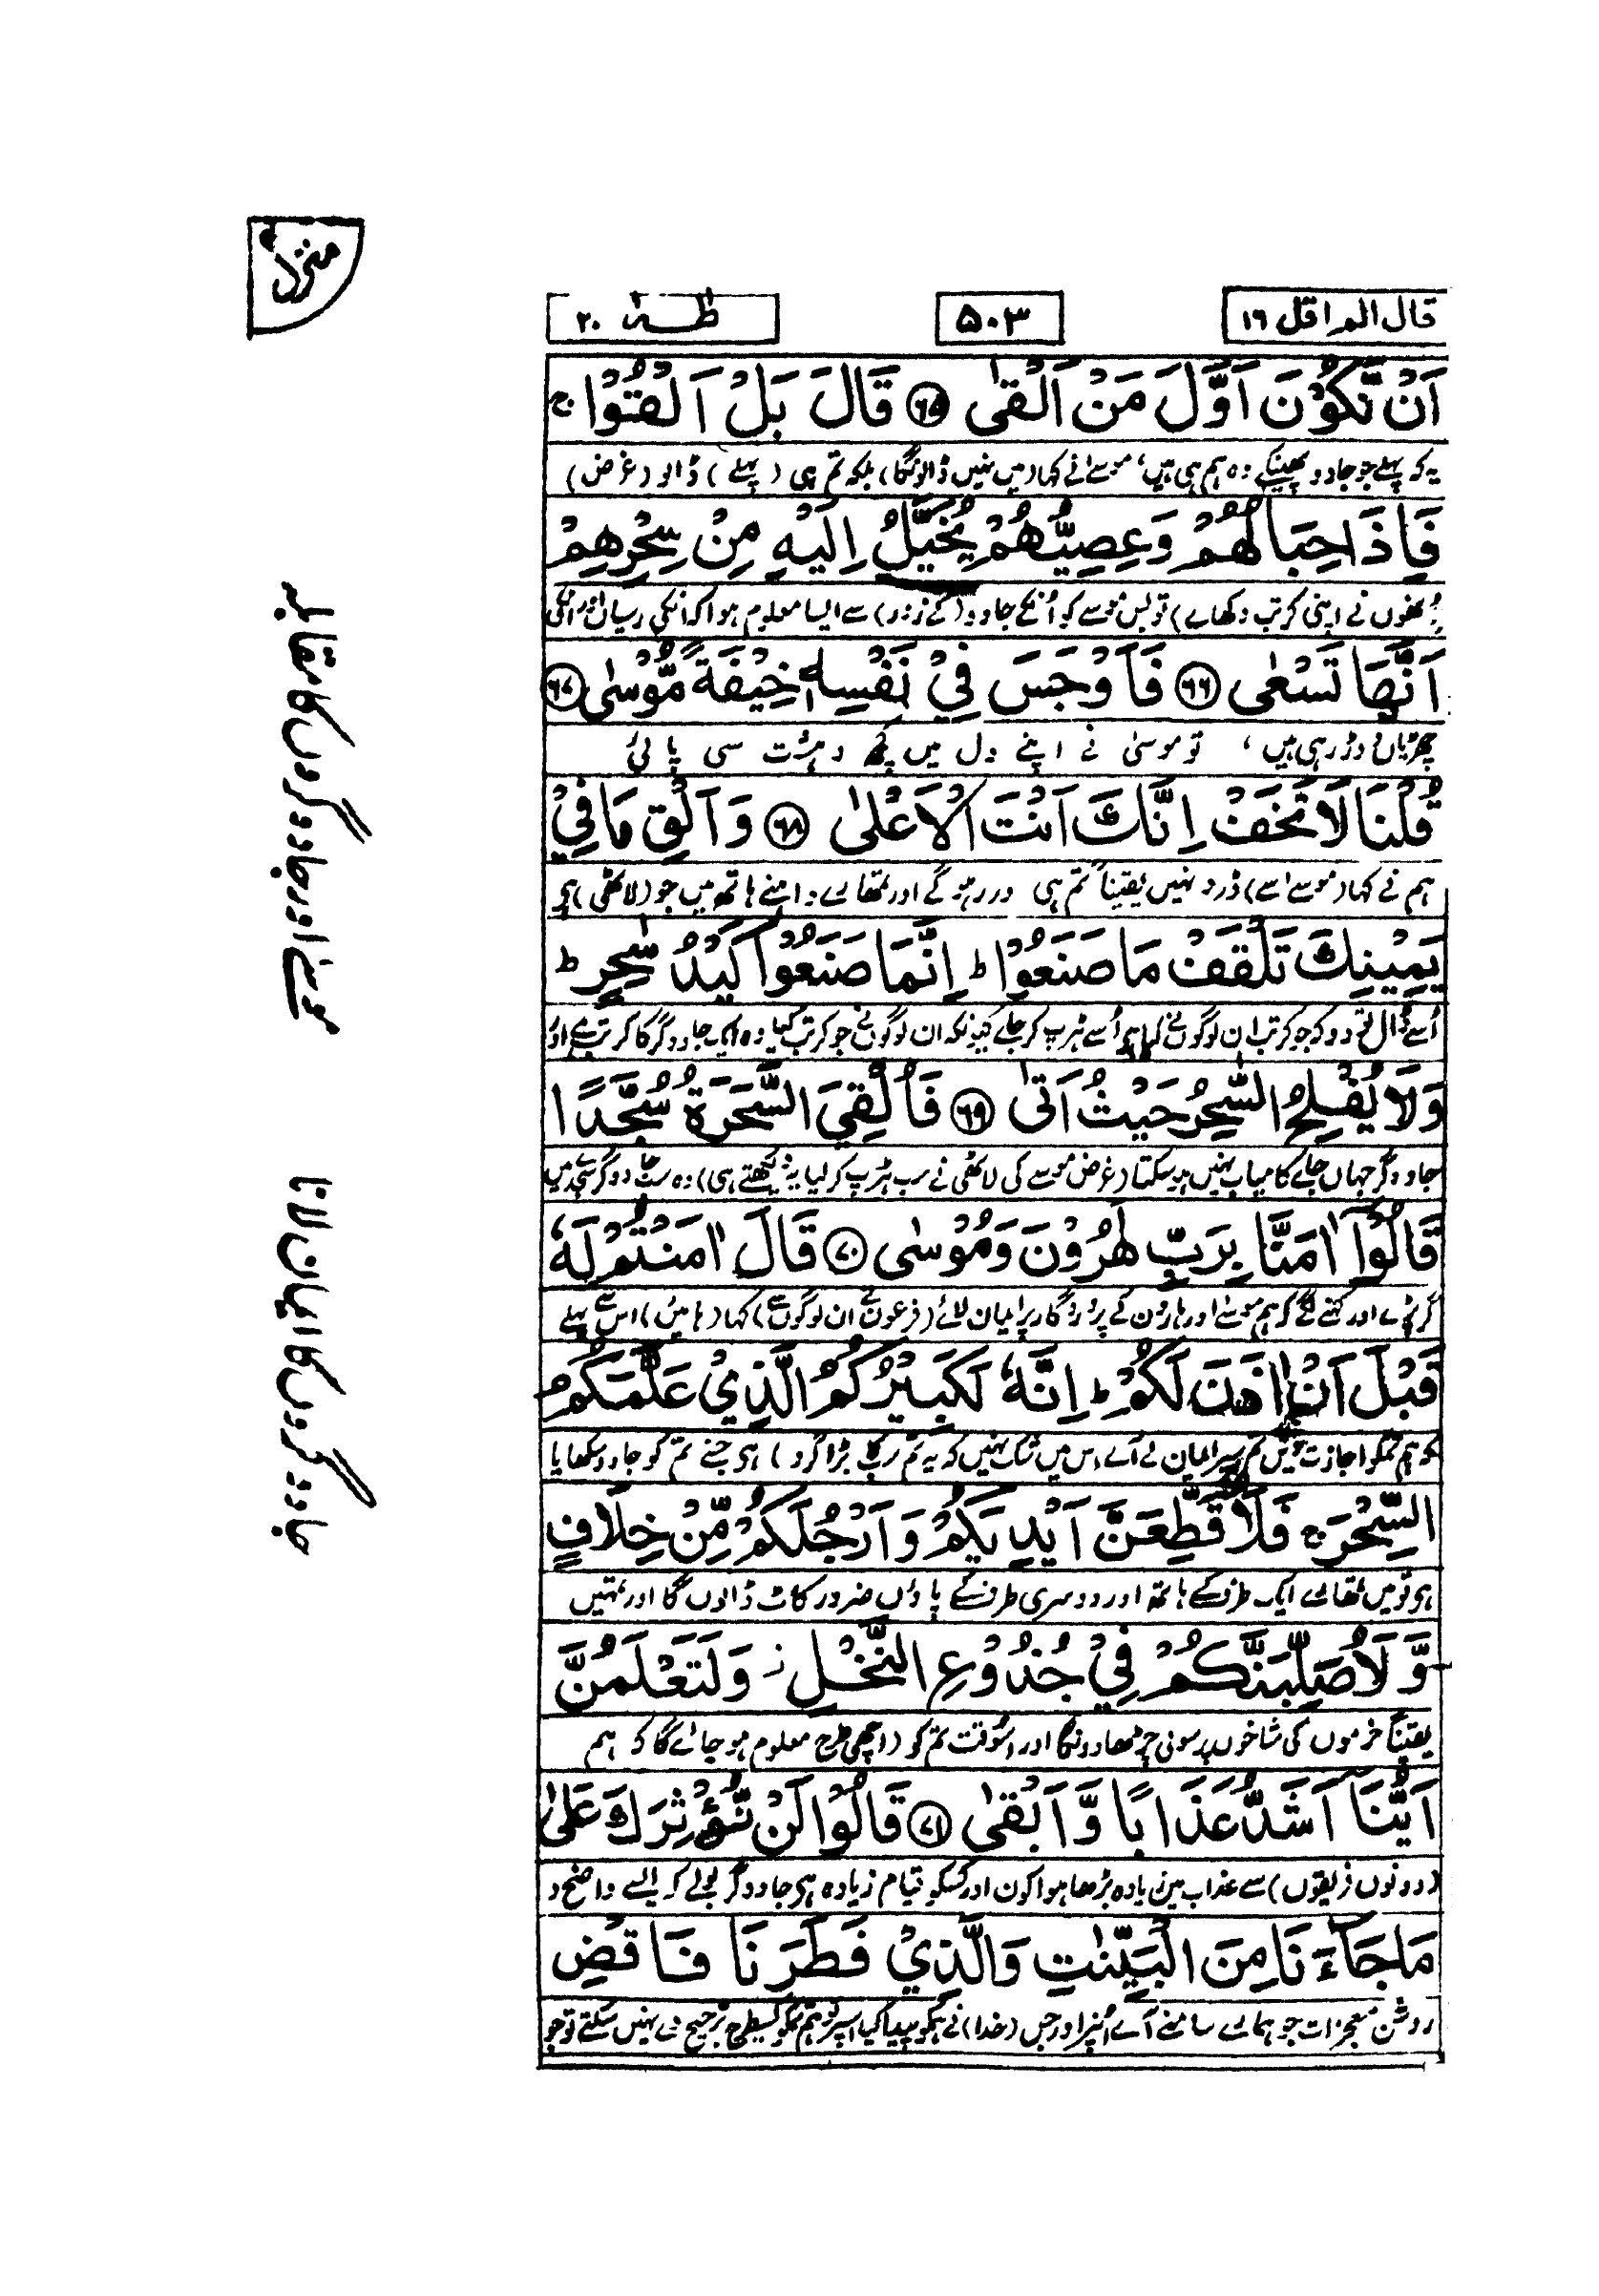 قال الم اقل ١٦
۵۰۳
طٰهٰ ۲۰
منزل ۴
اَنْ نَّكُوْنَ اَوَّلَ مَنْ اَلْقٰى ﴿۶۵﴾ قَالَ بَلْ اَلْقُوْا ج
یہ کہ پہلے جو جادو پھینکے وہ ہم ہی ہیں، موسےٰ نے کہا (میں نہیں ڈالونگا) بلکہ تم ہی (پہلے) ڈالو (غرض)
فَاِذَا حِبَالُهُمْ وَعِصِيُّهُمْ يُخَيَّلُ اِلَيْهِ مِنْ سِحْرِهِمْ
اُنھوں نے اپنی کرتب دکھاے) تو بس موسے کو اُنکے جادو (کے زور) سے ایسا معلوم ہوا کہ انکی رسیاں اور انکی
اَنَّهَا تَسْعٰى ﴿۶۶﴾ فَاَوْجَسَ فِيْ نَفْسِهٖ خِيْفَةً مُّوْسٰى ﴿۶۷﴾
چھڑیاں دوڑ رہی ہیں، تو موسیٰ نے اپنے دل میں کچھ دہشت سی پائی
قُلْنَا لَا تَخَفْ اِنَّكَ اَنْتَ الْاَعْلٰى ﴿۶۸﴾ وَاَلْقِ مَا فِيْ
ہم نے کہا (موسےٰ اسے) ڈرو نہیں یقیناً تم ہی ور رہو گے اور تمھارے داہنے ہاتھ میں جو (لاٹھی) ہے
يَمِيْنِكَ تَلْقَفْ مَا صَنَعُوْا ط اِنَّمَا صَنَعُوْا كَيْدُ سٰحِرٍ ط
اُسے ڈال تو دو کہ جو کرتب ان لوگوں نے کیا ہے اُسے ہڑپ کر جاے کیونکہ ان لوگوں نے جو کرتب کیا وہ ایک جادوگر کا کرتب ہے اور
وَلَا يُفْلِحُ السّٰحِرُ حَيْثُ اَتٰى ﴿۶۹﴾ فَاُلْقِيَ السَّحَرَةُ سُجَّدًا
جادوگر جہاں جاے کامیاب نہیں ہو سکتا (غرض موسے کی لاٹھی نے سب ہڑپ کر لیا یہ دیکھتے ہی) وہ سب جادوگر سجدے میں
قَالُوْٓا اٰمَنَّا بِرَبِّ هٰرُوْنَ وَمُوْسٰى ﴿۷۰﴾ قَالَ اٰمَنْتُمْ لَهٗ
گر پڑے اور کہنے لگے کہ ہم موسےٰ اور ہارون کے پروردگار پر ایمان لائے (فرعون نے ان لوگوں سے) کہا (ہائیں) اس سے پہلے
قَبْلَ اَنْ اٰذَنَ لَكُمْ ط اِنَّهٗ لَكَبِيْرُكُمُ الَّذِيْ عَلَّمَكُمُ
کہ ہم تمکو اجازت دیں تم اسپر ایمان لے آے، اس میں شک نہیں کہ یہ تم سب کا بڑا (گرو) ہے جسنے تم کو جادو سکھایا
السِّحْرَ ج فَلَاُقَطِّعَنَّ اَيْدِيَكُمْ وَاَرْجُلَكُمْ مِّنْ خِلَافٍ
ہے تو میں تمھارے ایک طرف کے ہاتھ اور دوسری طرف کے پاؤں ضرور کاٹ ڈالوں گا اور تمہیں
وَّلَاُصَلِّبَنَّكُمْ فِيْ جُذُوْعِ النَّخْلِ ز وَلَتَعْلَمُنَّ
یقیناً خرموں کی شاخوں پر سولی چڑھا دونگا اور اُسوقت تم کو (اچھی طرح معلوم ہو جاے گا کہ ہم
اَيُّنَآ اَشَدُّ عَذَابًا وَّاَبْقٰى ﴿۷۱﴾ قَالُوْا لَنْ نُّؤْثِرَكَ عَلٰى
(دونوں فریقوں) سے عذاب میں زیادہ بڑھا ہوا کون اور کسکو قیام زیادہ ہے جادوگر بولے کہ ایسے واضح و
مَا جَآءَنَا مِنَ الْبَيِّنٰتِ وَالَّذِيْ فَطَرَنَا فَاقْضِ
روشن معجزات جو ہمارے سامنے آے اُنپر اور جس (خدا) نے ہمکو پیدا کیا اسپر تو ہم تمکو کسیطرح ترجیح نہیں دے سکتے تو جو
موسے اور جادوگروں کا مقابلہ
جادوگروں کا ایمان لانا